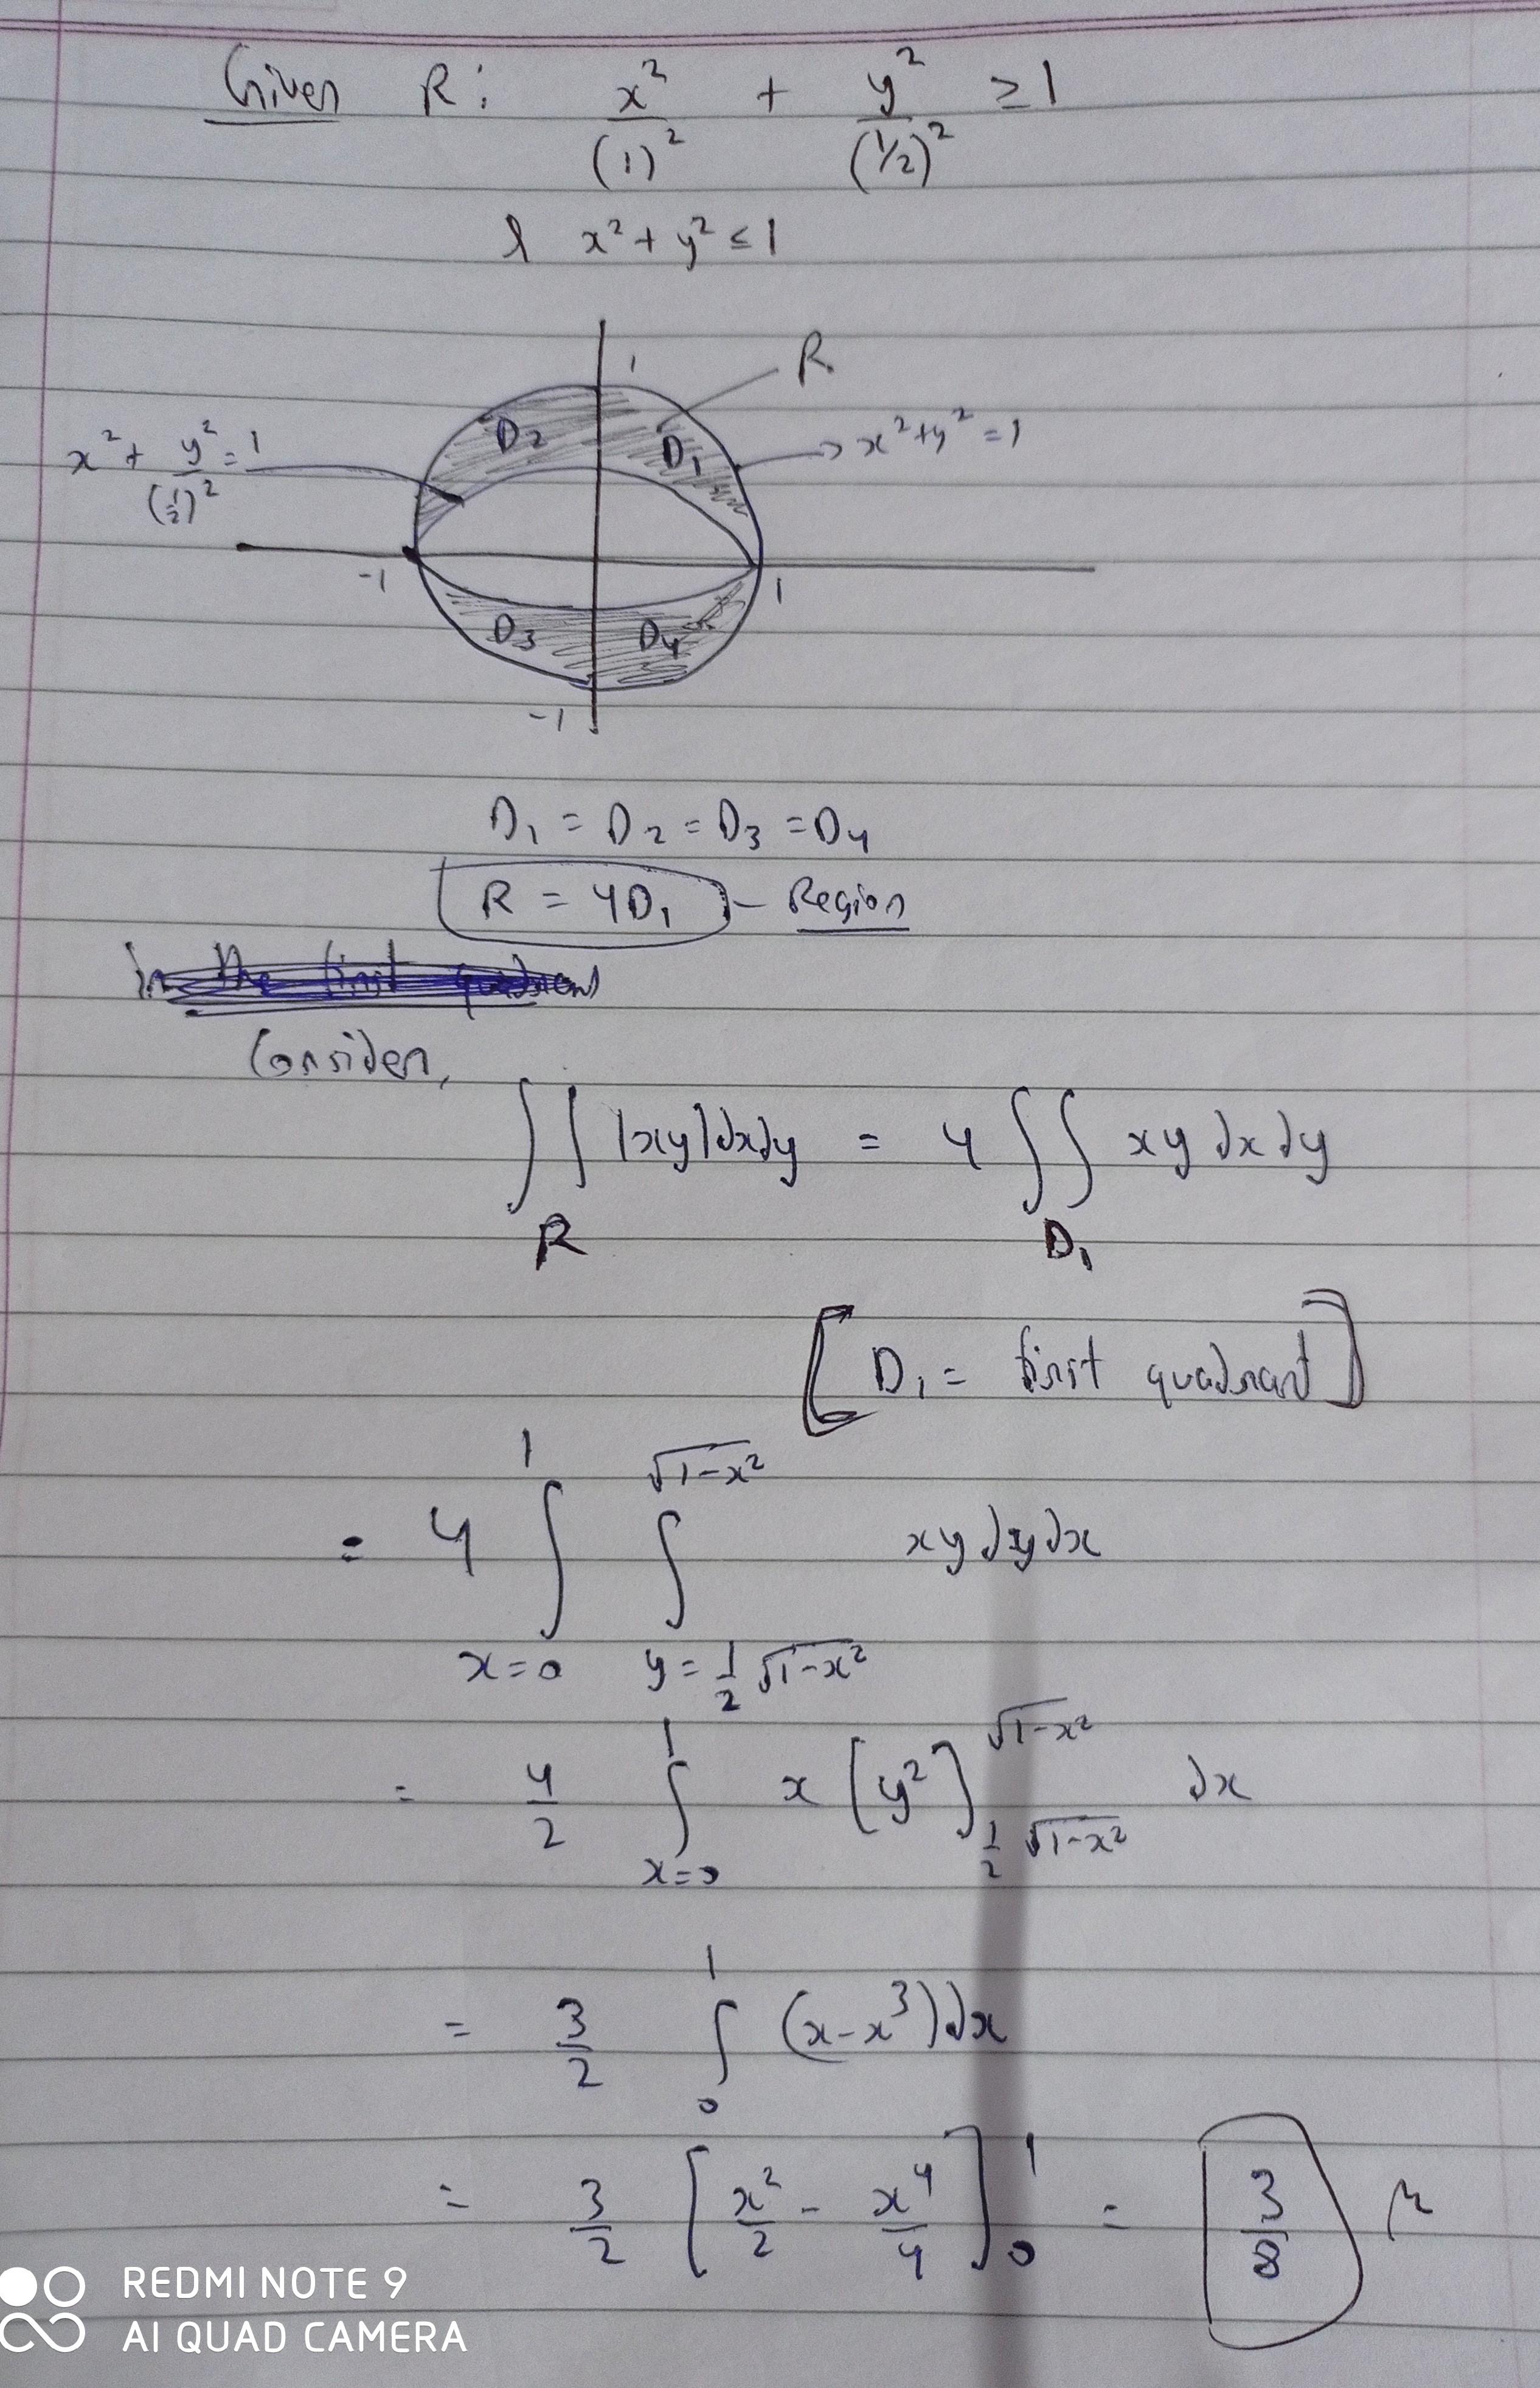 Given R: x²/(1)² + y²/(1/2)² ≥ 1
& x² + y² ≤ 1
1
R
x² + y²/(1/2)² = 1
D2
D1
→ x² + y² = 1
-1
1
D3
D4
-1
D₁ = D₂ = D₃ = D₄
R = 4D₁ - Region
In the first quadrant
Consider,
∫∫_R |xy|dxdy = 4 ∫∫_D₁ xy dx dy
[D₁ = first quadrant]
= 4 ∫_{x=0}^{1} ∫_{y=½√(1-x²)}^{√(1-x²)} xy dy dx
= 4/2 ∫_{x=0}^{1} x [y²]_{½√(1-x²)}^{√(1-x²)} dx
= 3/2 ∫_0^1 (x-x³)dx
= 3/2 [x²/2 - x⁴/4]_0^1 = 3/8
REDMI NOTE 9
AI QUAD CAMERA